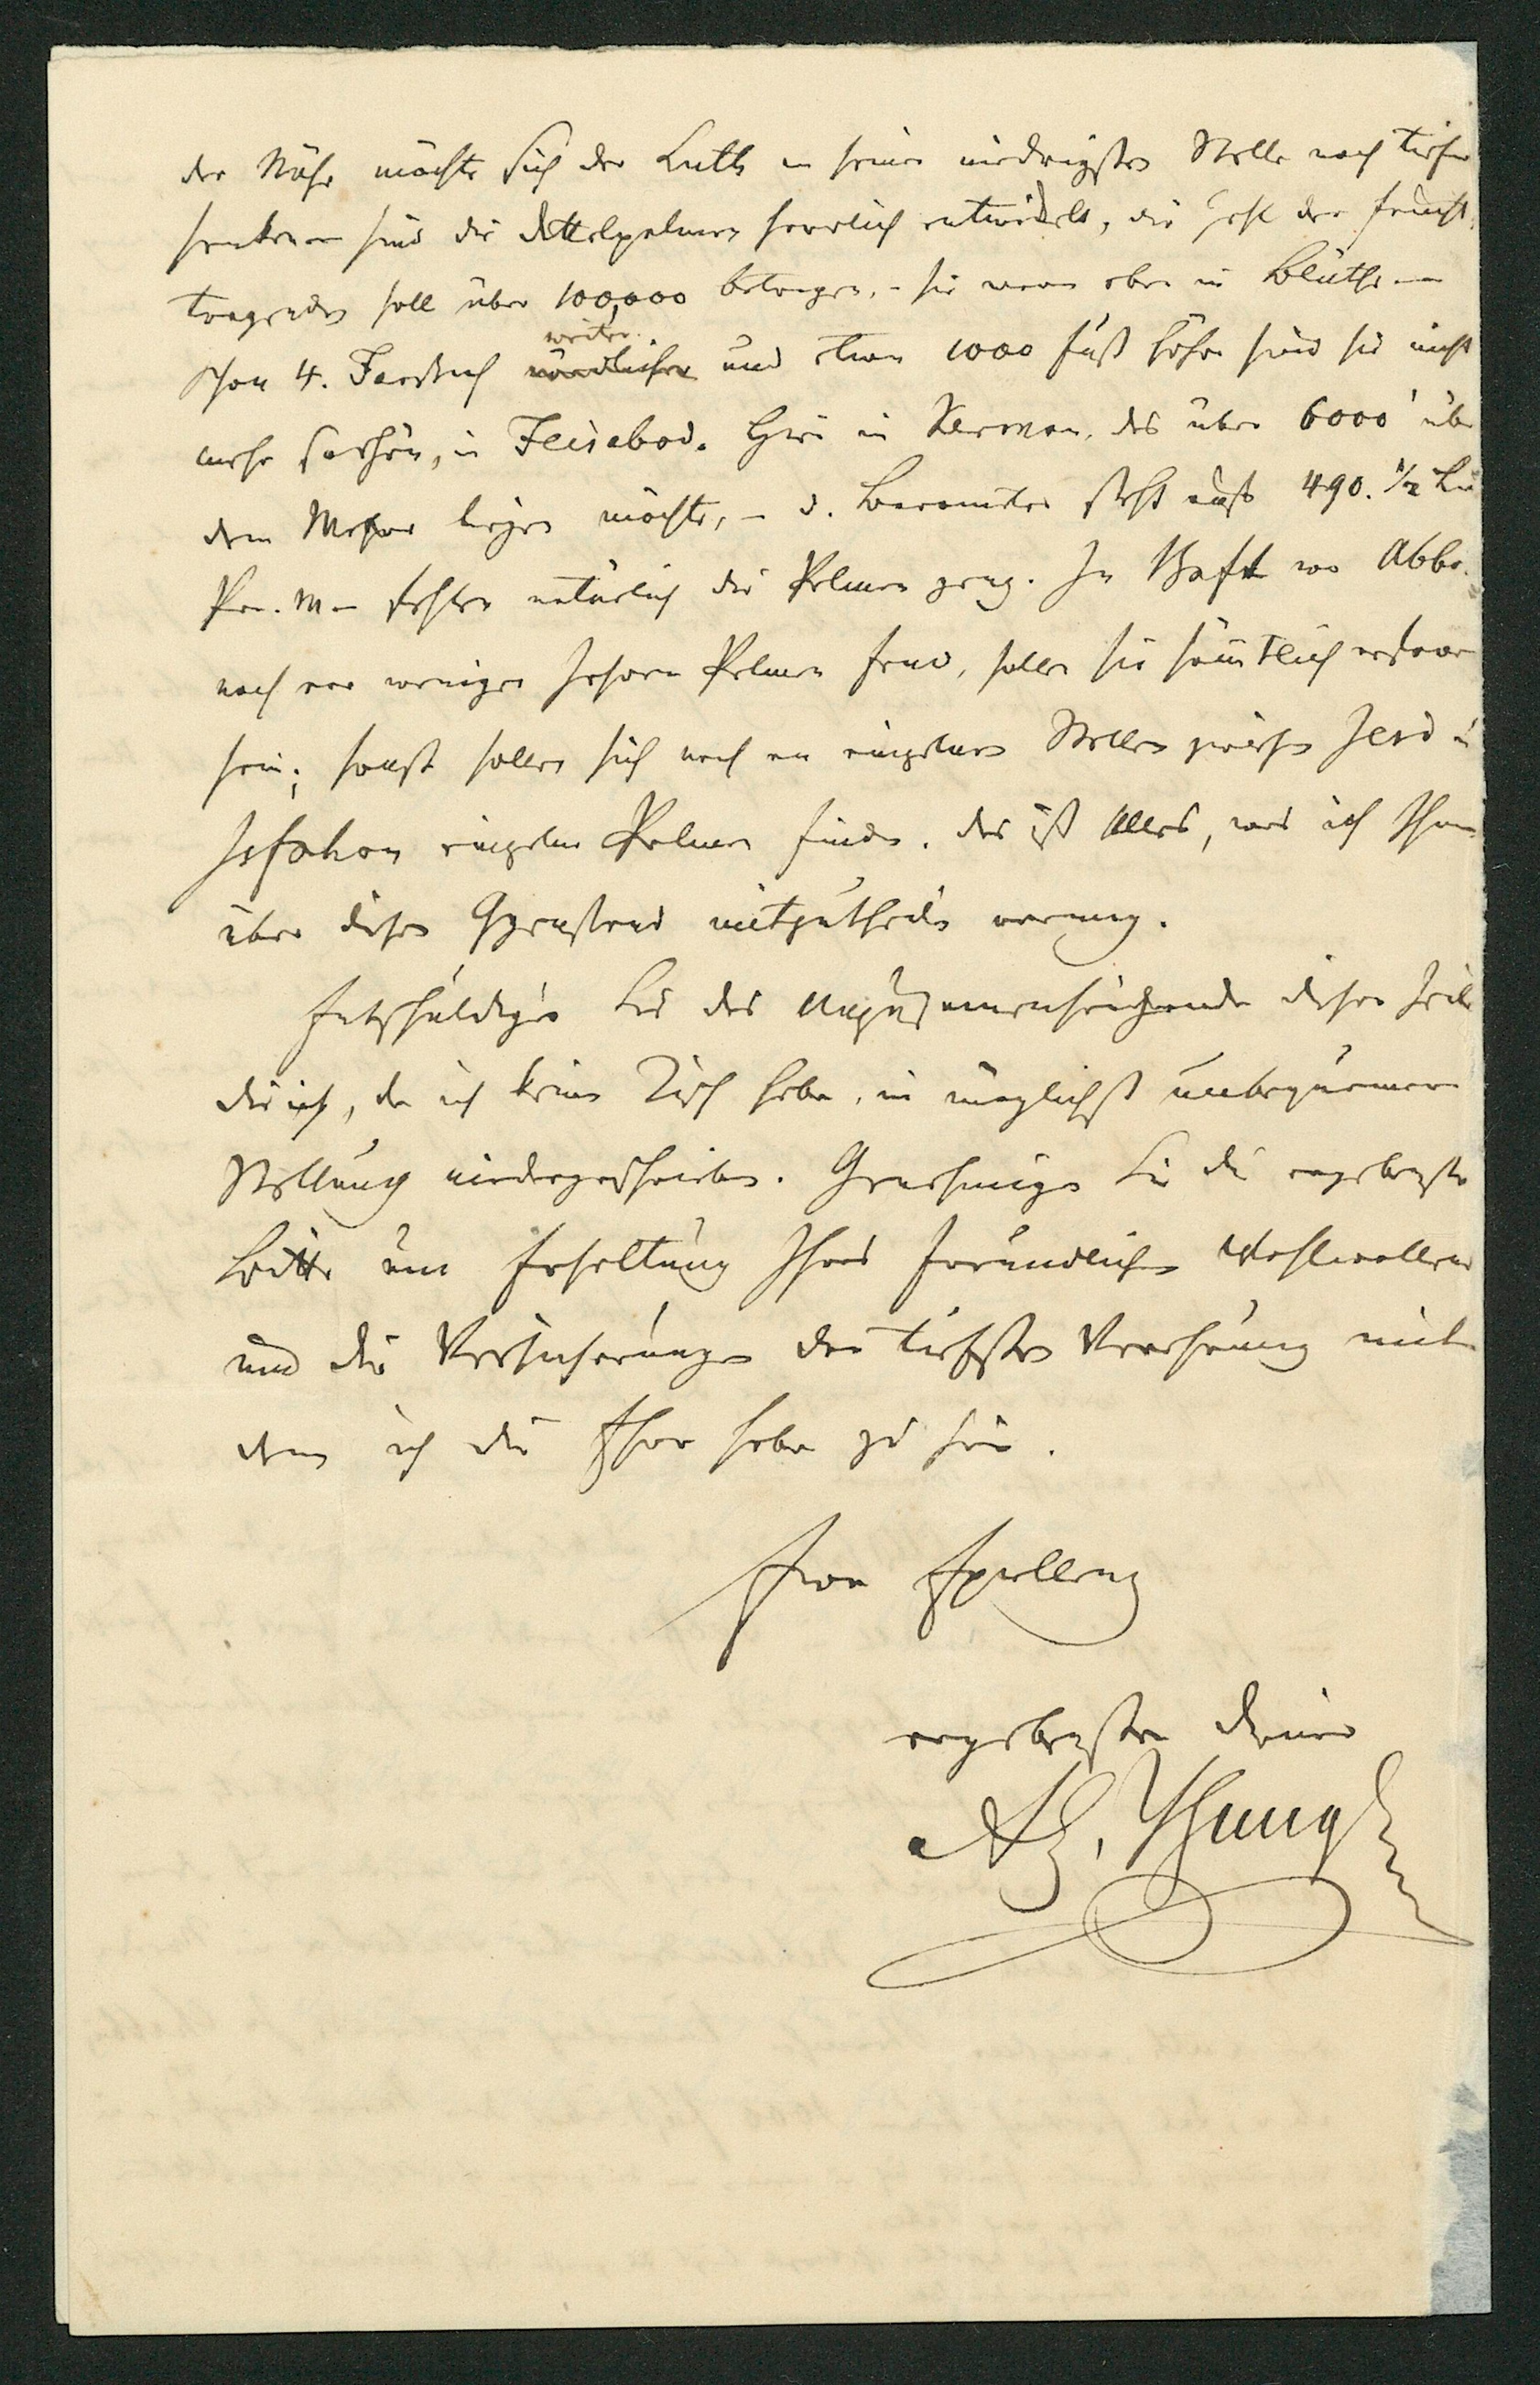 der Nähe möchte sich der Luth in seiner niedrigsten Stelle noch tiefer
senken — sind die Dattelpalmen herrlich entwickelt, die Zahl der frucht-
tragenden soll über 100,000 betragen, – sie waren eben in Blüthe —
Schon 4. Farsach weiter und etwa 1000 Fuß höher sind sie nicht
mehr so schön, in Feisabad. Hier in Kerman, das über 6000' über
dem Meere liegen möchte, – d. Barometer steht auf 490. 1/2
Par. M – fehlen natürlich die Palmen ganz. In Baft wo Abbo
noch vor wenigen Jahren Palmen fand, sollen sie sämtlich erfroren
sein; sonst sollen sich noch an einzelnen Stellen zwischen Jesd u
Isfahan einzelne Palmen finden. Das ist Alles, was ich Ihnen
über diesen Gegenstand mitzutheilen vermag.
Entschuldigen Sie das dieser Zeilen
die ich, da ich keinen Tisch habe, in möglichst unbequemer
Stellung niedergeschrieben. Genehmigen Sie die ergebenste
Bitte um Erhaltung Ihres freundlichen Wohlwollens
und die Versicherungen der tiefsten Verehrung mit
der ich die Ehre habe zu sein.
Euer Excellenz
ergebenster Diener
Al. Bunge